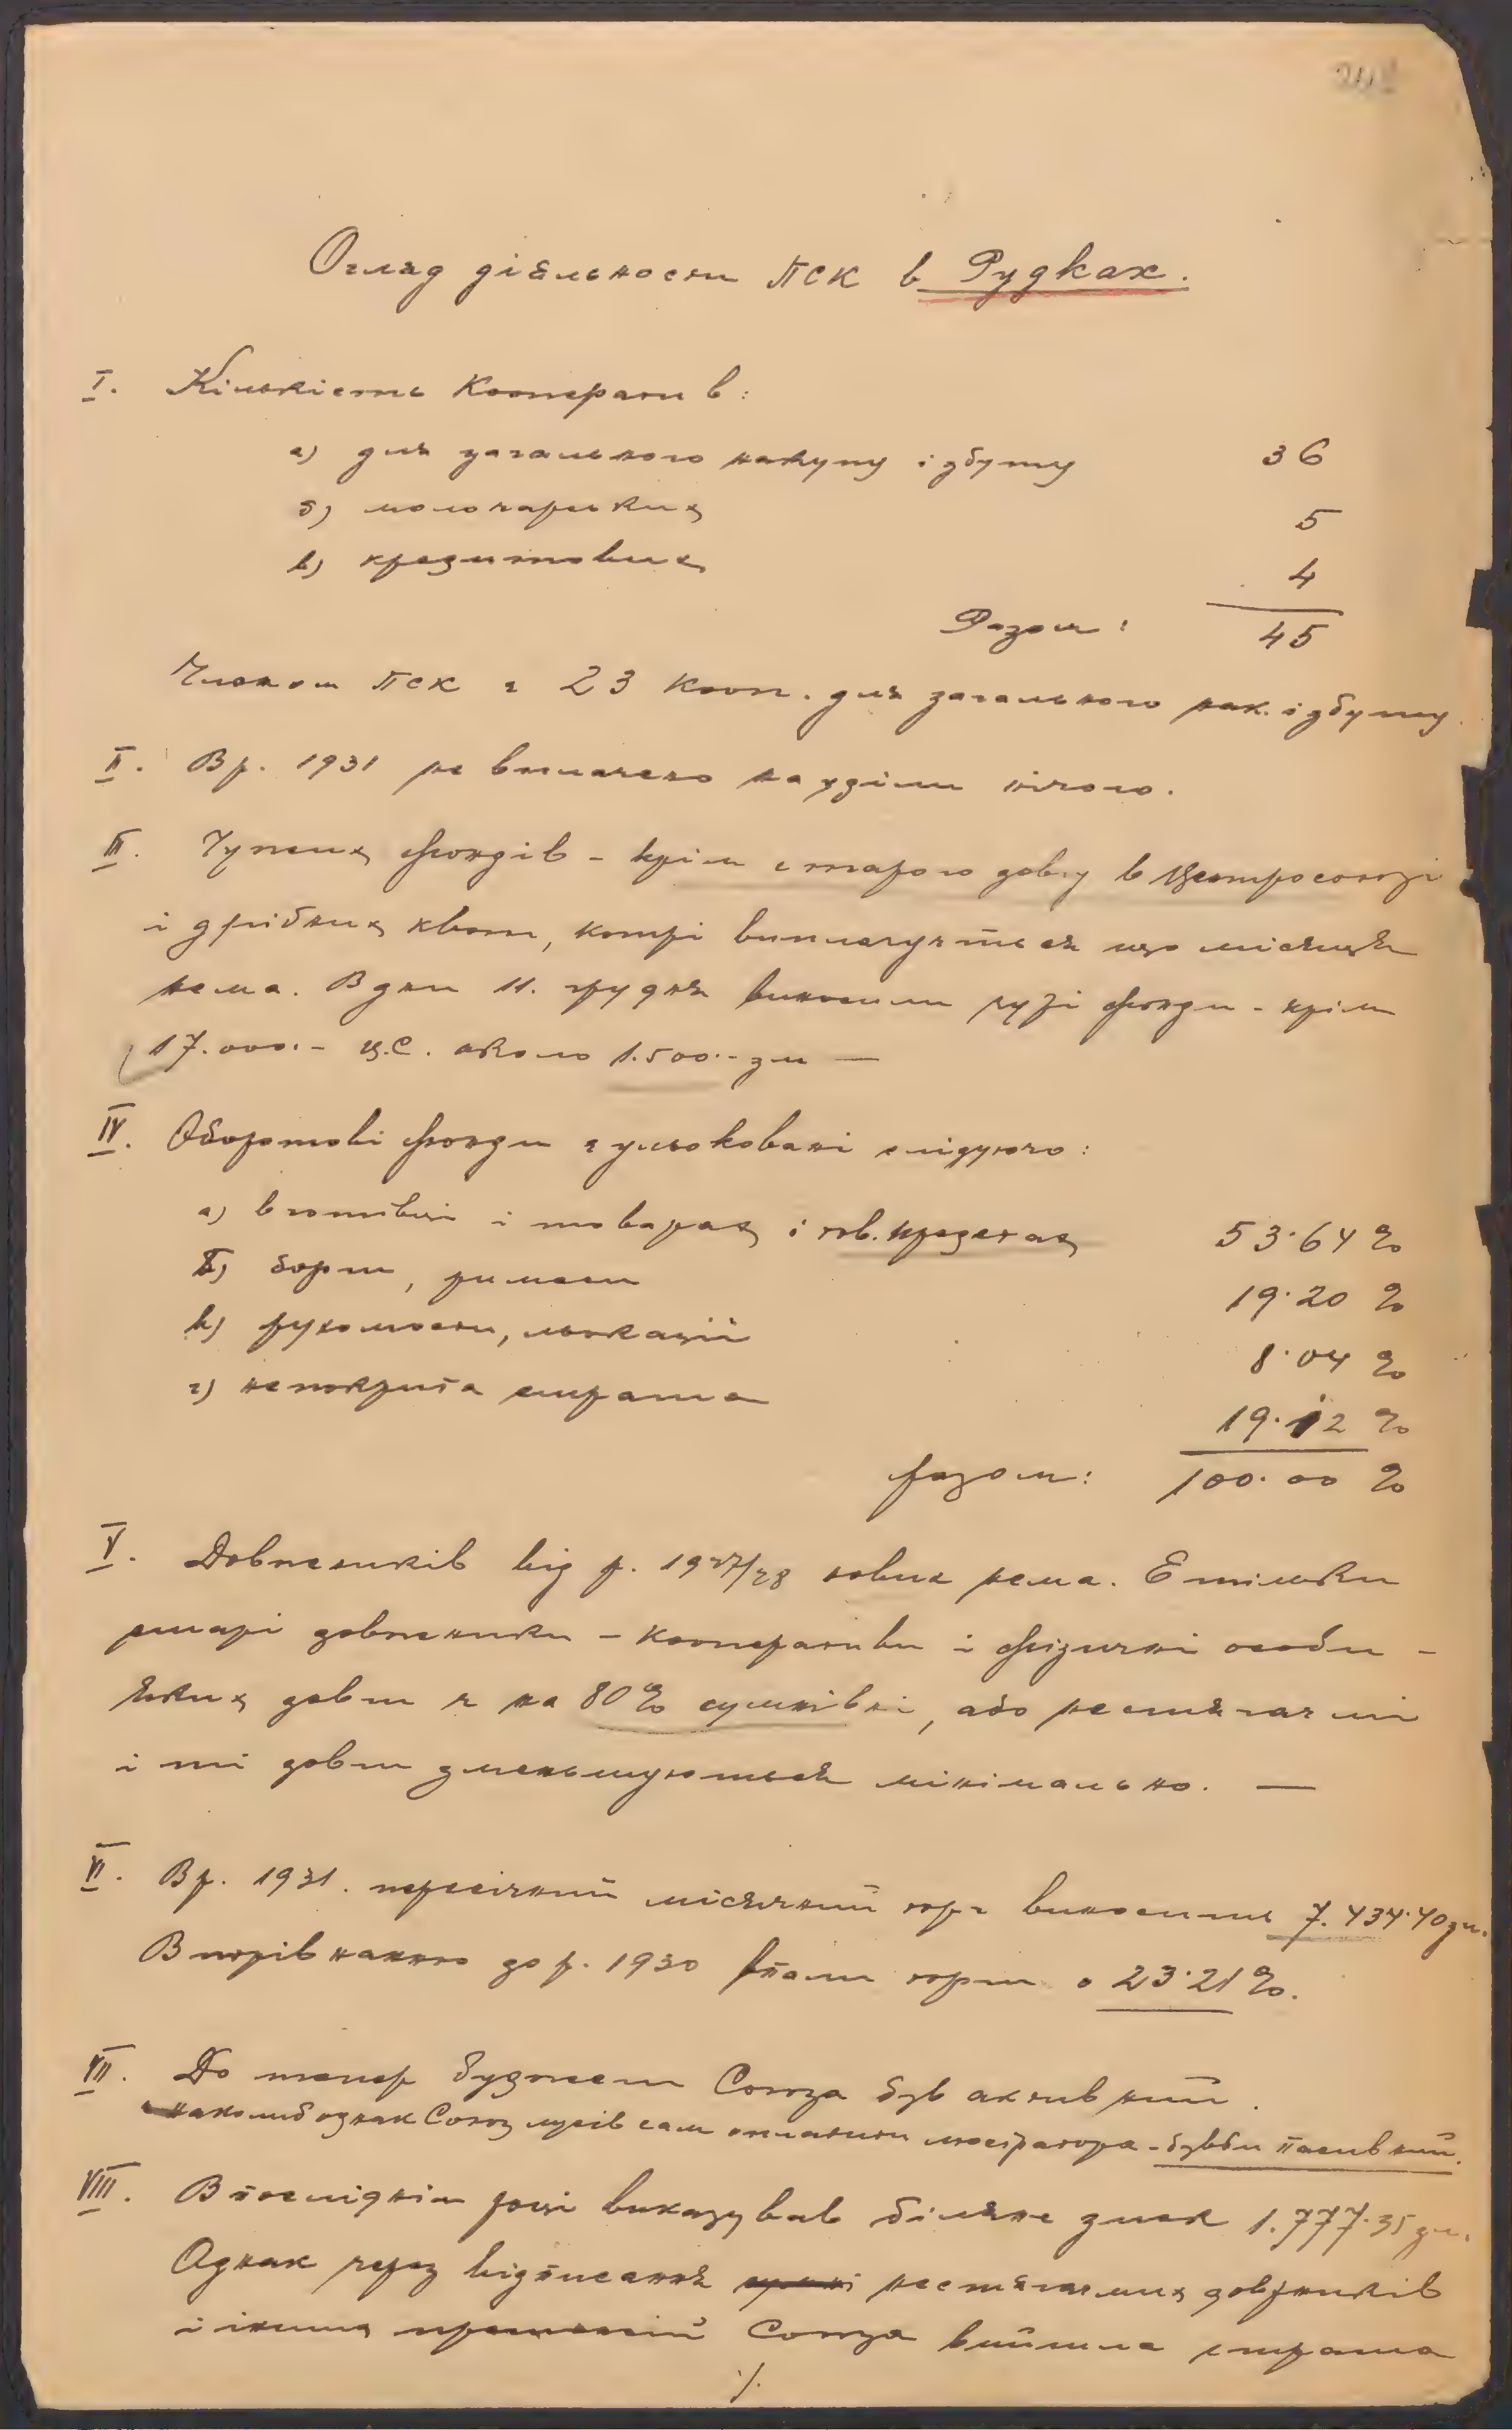 Огляд діяльности ПСК в Рудках.
I. Кількість Кооператив:
а) для загального накупу і збуту 36
б) молочарських 5
в) кредитових 4
Разом: 45
Членом ПСК є 23 Кооп. для загального нак. і збуту.
II. В р. 1931 не виплачено на уділи нічого.
III. Чужих фондів - крім старого довгу в Центросоюзі
і дрібних квот, котрі виплачується що місяця
нема. В дни 11. грудня виносили чужі фонди - крім
17.000.- Ц.С. около 1.500.- зл —
IV. Оборотові фонди є ульоковані слідуючо:
а) в готівці і товарах і тов. кредетах 53·64 %
б) борги, римеси 19·20 %
в) рухомости, льокації 8·04 %
г) непокрита страта 19·12 %
разом: 100·00 %
V. Довжників від р. 1927/28 нових нема. Є тільки
старі довжники - Кооперативи і фізичні особи -
яких довги є на 80% сумнівні, або нестягальні
і ті довги зменьшуються мінімально. —
VI. В р. 1931. пересічний місячний торг виносить 7.434·40 зл.
В порівнанню до р. 1930 впали торги о 23·21 %.
VII. До тепер буджет Союза був активний.
наколиб однак Союз мусів сам оплатити люстратора - бувби пасивний.
VIII. В последнім році виказував білянс зиск 1.777·35 зл.
Однак через відписання нестягальних довжників
і інших Союза вийшла страта
./.